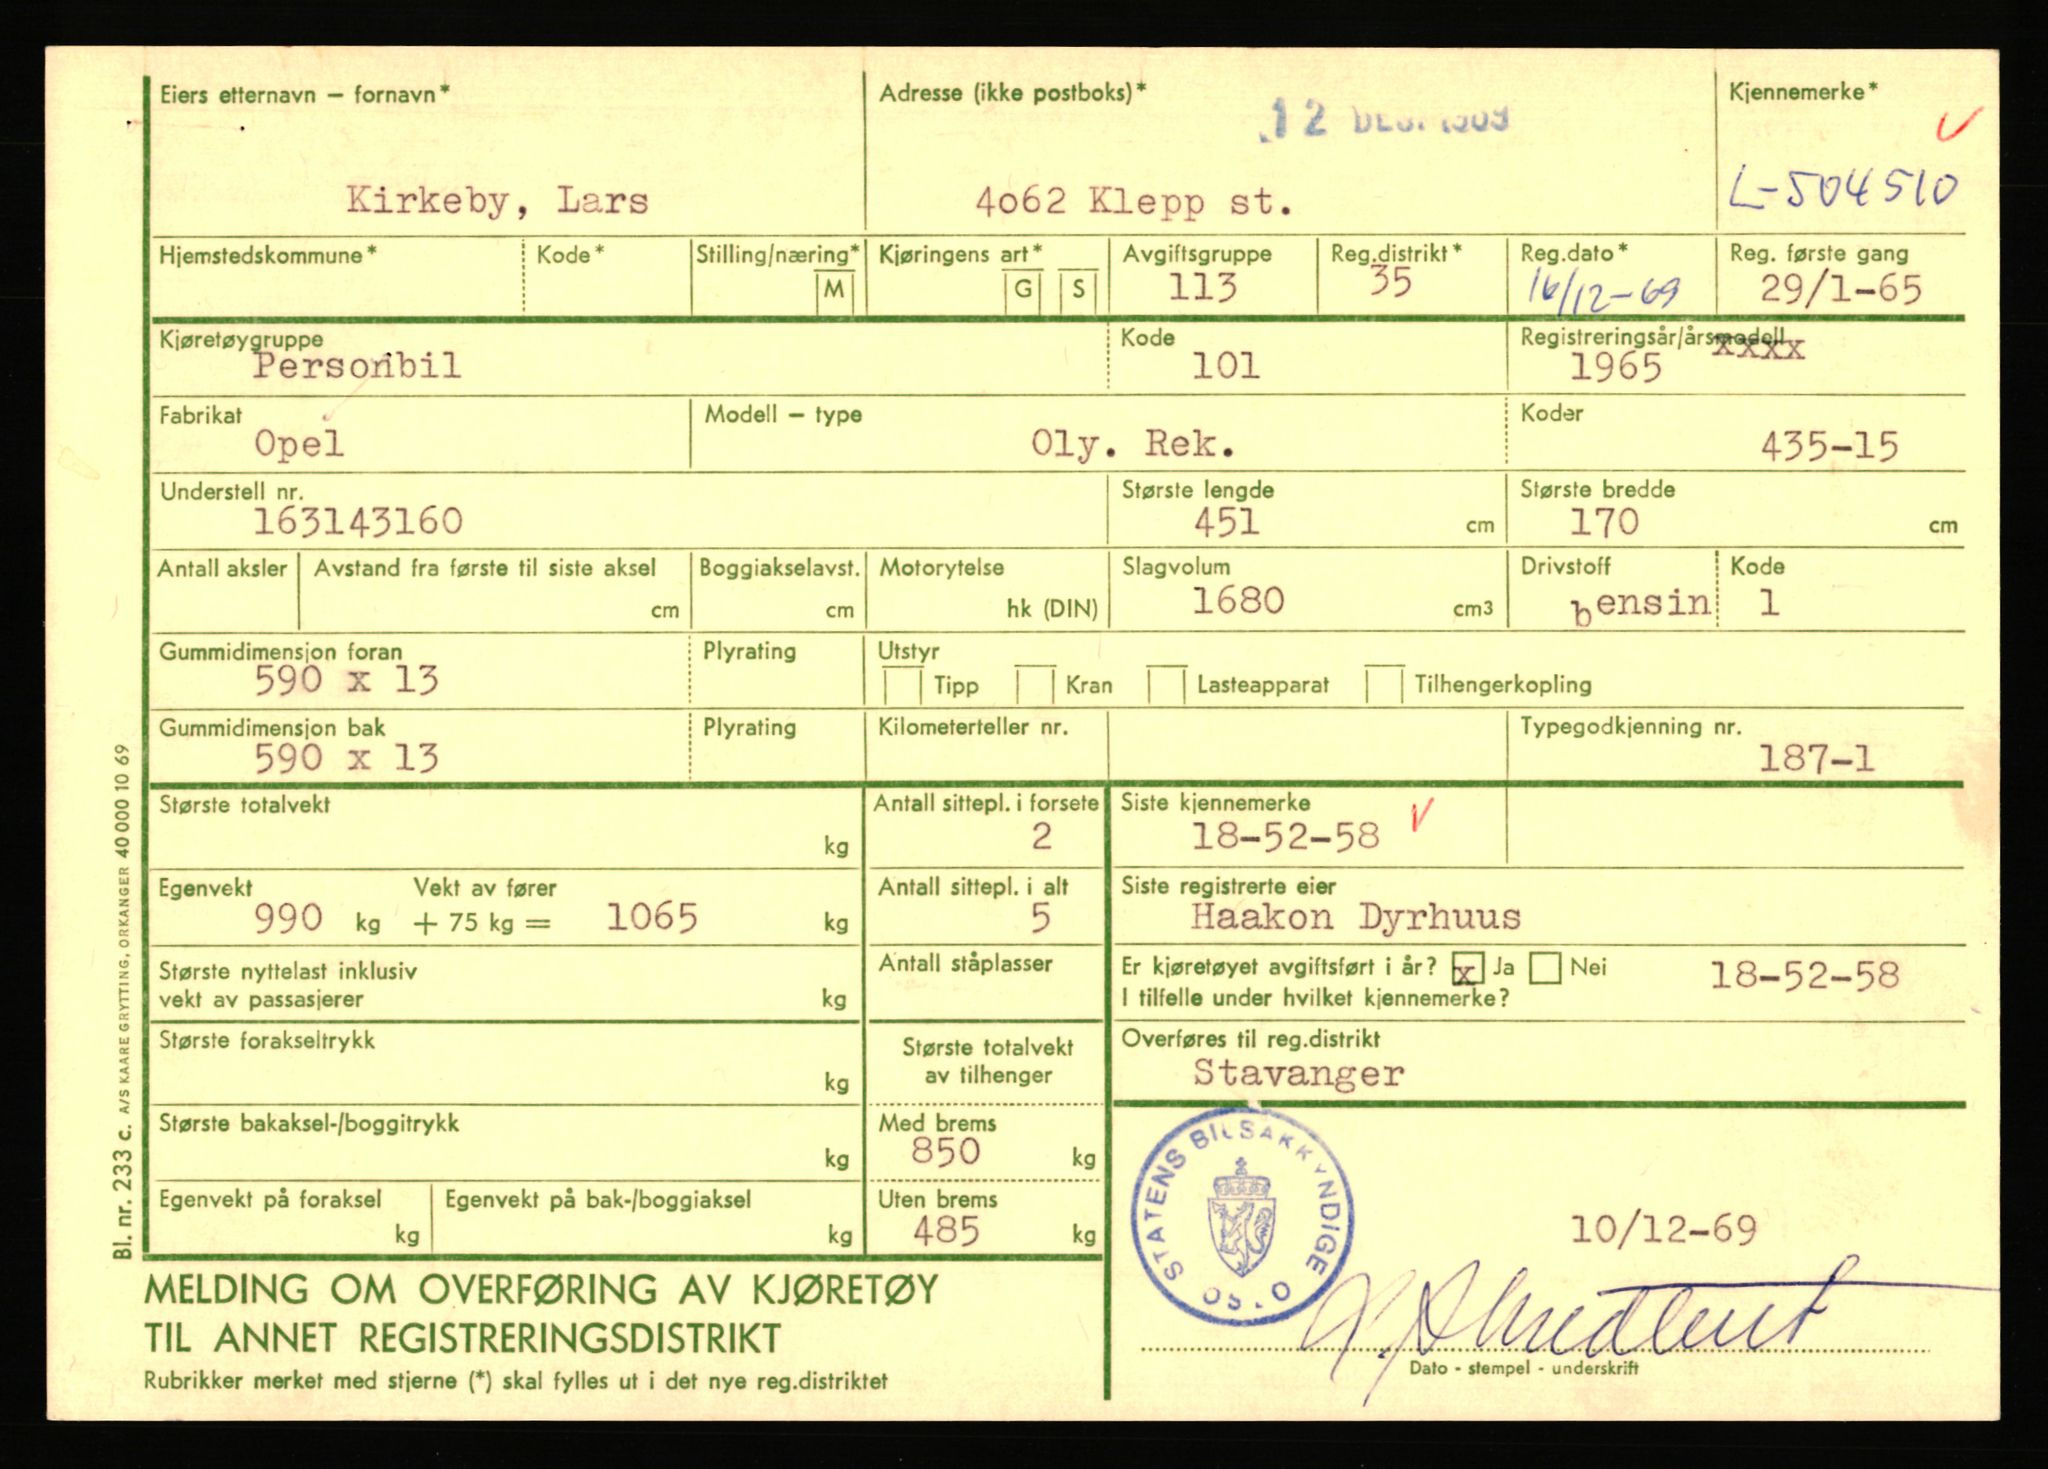 Eiers etternavn – fornavn*
Adresse (ikke postboks)*
Kjennemerke*
12 DES. 1969
Kirkeby, Lars
4o62 Klepp st.
L-504510
Hjemstedskommune*
Kode*
Stilling/næring*
M
Kjøringens art*
G
S
Avgiftsgruppe
113
Reg.distrikt*
35
Reg.dato*
16/12-69
Reg. første gang
29/1-65
Kjøretøygruppe
Personbil
Kode
101
Registreringsår/årsmodell
1965 xxxx
Fabrikat
Opel
Modell – type
Oly. Rek.
Koder
435-15
Understell nr.
163143160
Største lengde
451 cm
Største bredde
170 cm
Antall aksler
Avstand fra første til siste aksel
cm
Boggiakselavst.
cm
Motorytelse
hk (DIN)
Slagvolum
1680 cm3
Drivstoff
bensin
Kode
1
Gummidimensjon foran
590 x 13
Plyrating
Utstyr
Tipp Kran Lasteapparat Tilhengerkopling
Gummidimensjon bak
590 x 13
Plyrating
Kilometerteller nr.
Typegodkjenning nr.
187-1
Største totalvekt
kg
Antall sittepl. i forsete
2
Siste kjennemerke
18-52-58
Egenvekt Vekt av fører
990 kg + 75 kg = 1065 kg
Antall sittepl. i alt
5
Siste registrerte eier
Haakon Dyrhuus
Største nyttelast inklusiv
vekt av passasjerer kg
Antall ståplasser
Er kjøretøyet avgiftsført i år? x Ja Nei
I tilfelle under hvilket kjennemerke?
18-52-58
Største forakseltrykk
kg
Største totalvekt
av tilhenger
Overføres til reg.distrikt
Stavanger
Største bakaksel-/boggitrykk
kg
Med brems
850 kg
Egenvekt på foraksel
kg
Egenvekt på bak-/boggiaksel
kg
Uten brems
485 kg
STATENS BILSAKKYNDIGE OSLO
10/12-69
Dato - stempel - underskrift
MELDING OM OVERFØRING AV KJØRETØY
TIL ANNET REGISTRERINGSDISTRIKT
Rubrikker merket med stjerne (*) skal fylles ut i det nye reg.distriktet
Bl. nr. 233 c. A/S KAARE GRYTTING, ORKANGER 40 000 10 69